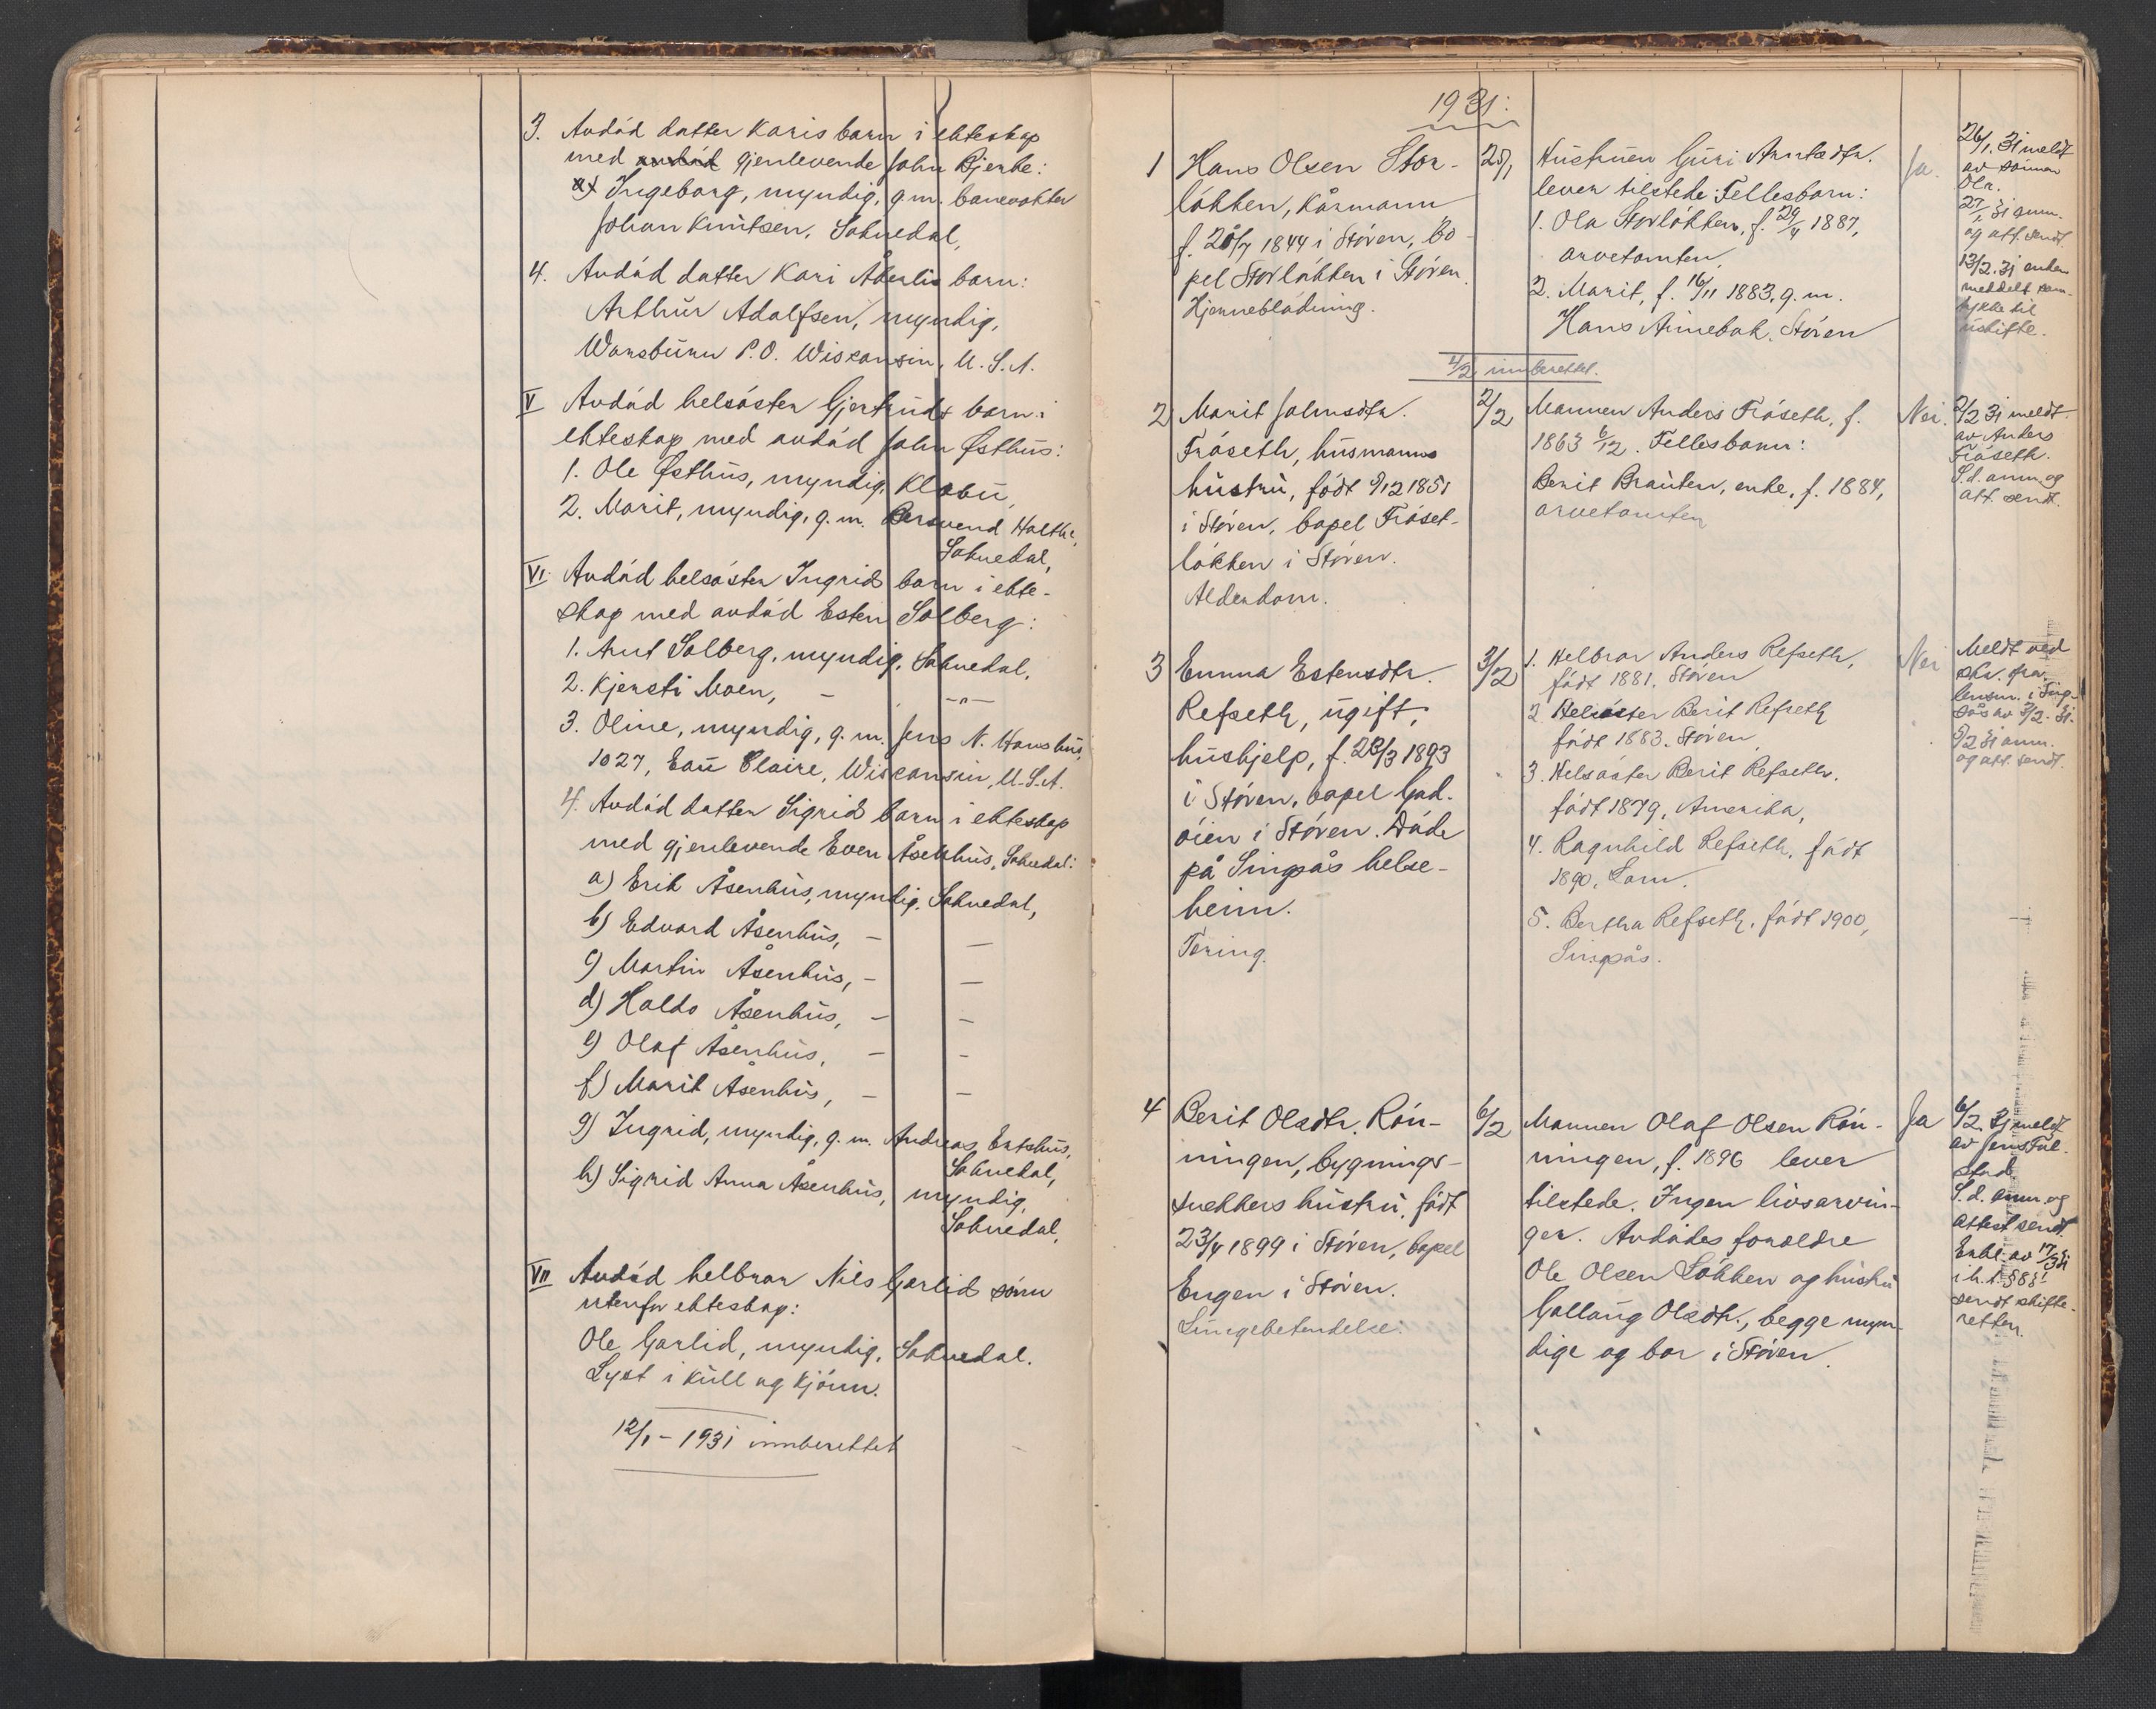 3. Avdød datter Karis barn i ekteskap
med avdød gjenlevende John Bjerke:
a) Ingeborg, myndig, g.m. banevokter
Johan Knutsen, Soknedal,
4. Avdød datter Kari Åberlis barn:
Arthur Adolfsen, myndig,
P.O. Wiskonsin, U.S.A.
V Avdød helsøster Gjertruds barn i
ekteskap med avdød John Østhus:
1. Ole Østhus, myndig, Klæbu,
2. Marit, myndig, g.m. Bersvend Holthe,
Soknedal,
VI. Avdød helsøster Ingrids barn i ekte-
skap med avdød Esten Solberg:
1. Arnt Solberg, myndig, Soknedal,
2. Kjersti Moen, — —"—
3. Oline, myndig, g.m. Jens N. Hanshus,
1027, Eau Claire, Wiskonsin, U.S.A.
4. Avdød datter Sigrids barn i ekteskap
med gjenlevende Even Åsenhus, Soknedal:
a) Erik Åsenhus, myndig, Soknedal,
b) Edvard Åsenhus, — —
c) Martin Åsenhus, — —
d) Haldo Åsenhus, — —
e) Olaf Åsenhus, — —
f) Marit Åsenhus, — —
g) Ingrid, myndig, g.m. Andreas Ertshus,
Soknedal,
h) Sigrid Anna Åsenhus, myndig,
Soknedal,
VII Avdød helbror Nils Garlids sønn
utenfor ekteskap:
Ole Garlid, myndig, Soknedal.
Lyst i kull og kjønn.
12/1 - 1931 innberettet
1931:
1 Hans Olsen Stor-
løkken, kårmann
f. 20/7 1844 i Støren, bo-
pel Storløkken i Støren.
Hjerneblødning.
25/1
Hustruen Guri Arntsdtr.
lever tilstede. Fellesbarn:
1. Ola Storløkken, f. 29/4 1887,
arvetomten
2. Marit, f. 16/11 1883, g.m.
Hans Arnebak, Støren
Ja.
26/1. 31 meldt
av sønnen
Ola.
27/1 31 ann.
og att. sendt.
13/2. 31 enken
meddelt sam-
tykke til
uskifte.
4/2 innberettet.
2 Marit Johnsdtr.
Frøseth, husmanns
hustru, født 9/12 1851
i Støren, bopel Frøset-
løkken i Støren.
Alderdom.
2/2
Mannen Anders Frøseth, f.
1863 6/12. Fellesbarn:
Berit Brauten, enke, f. 1884,
arvetomten
Nei.
2/2 31 meldt
av Anders
Frøseth.
S.d. ann. og
att. sendt.
3 Emma Estensdtr.
Refseth, ugift,
hushjelp, f. 23/3 1893
i Støren, bopel God-
øien i Støren. Døde
på Singsås helse-
heim.
Tæring.
3/2
1. Helbror Anders Refseth,
født 1881, Støren
2. Helsøster Berit Refseth
født 1883, Støren
3. Helsøster Berit Refseth,
født 1879, Amerika,
4. Ragnhild Refseth, født
1890, Lom.
5. Bertha Refseth, født 1900,
Singsås.
Nei
Meldt ved
skr. fra
lensm. i Sing-
sås av 3/2. 31.
5/2 31 ann.
og att. sendt.
4 Berit Olsdtr. Røn-
ningen, bygnings-
snekkers hustru, født
23/4 1899 i Støren, bopel
Engen i Støren.
Lungebetendelse.
6/2
Mannen Olaf Olsen Røn-
ningen, f. 1896 lever
tilstede. Ingen livsarvin-
ger. Avdødes foreldre
Ole Olsen Løkken og hustru
Gollaug Olsdtr., begge myn-
dige og bor i Støren.
Ja
6/2. 31 meldt
av Jens
stad.
S.d. ann. og
attest sendt.
Erkl. av 17/3 31
i h. t. § 83
sendt skifte-
retten.